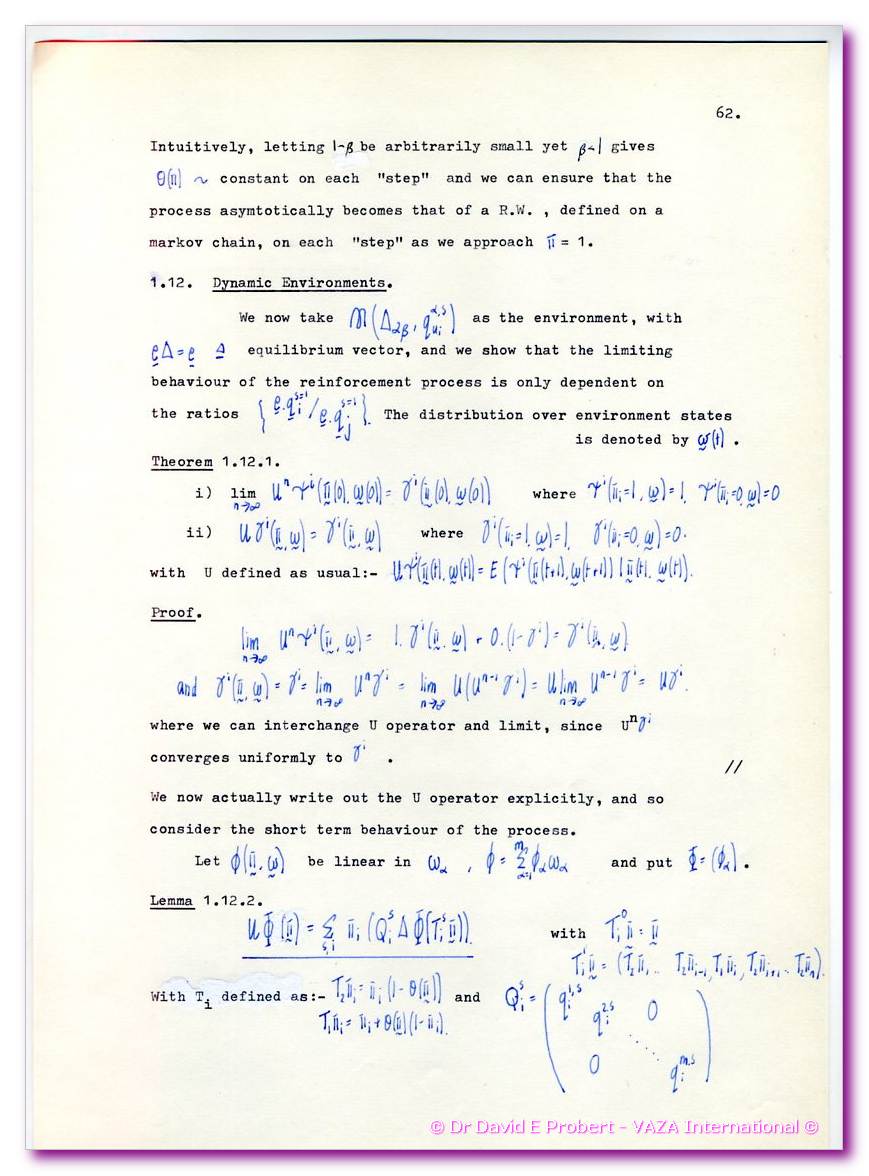 62.
Intuitively, letting 1-β be arbitrarily small yet β~1 gives
θ(π) ~ constant on each "step" and we can ensure that the
process asymtotically becomes that of a R.W. , defined on a
markov chain, on each "step" as we approach π = 1.
1.12. Dynamic Environments.
We now take as the environment, with
equilibrium vector, and we show that the limiting
behaviour of the reinforcement process is only dependent on
the ratios The distribution over environment states
is denoted by ω(t) .
Theorem 1.12.1.
i) lim n→∞ Uⁿψⁱ(π(0), ω(0)) = γⁱ(π(0), ω(0)) where ψⁱ(πᵢ=1, ω)=1, ψⁱ(πᵢ=0, ω)=0
ii) Uγⁱ(π, ω) = γⁱ(π, ω) where γⁱ(πᵢ=1, ω)=1, γⁱ(πᵢ=0, ω)=0.
with U defined as usual:- Uψⁱ(π(t), ω(t)) = E(ψⁱ(π(t+1), ω(t+1)) | π(t), ω(t)).
Proof.
lim n→∞ Uⁿψⁱ(π, ω) = 1.γⁱ(π, ω) + 0.(1-γⁱ) = γⁱ(π, ω)
and γⁱ(π, ω) = γⁱ = lim n→∞ Uⁿγⁱ = lim n→∞ U(Uⁿ⁻¹γⁱ) = U lim n→∞ Uⁿ⁻¹γⁱ = Uγⁱ.
where we can interchange U operator and limit, since Uⁿγⁱ
converges uniformly to γⁱ .
//
We now actually write out the U operator explicitly, and so
consider the short term behaviour of the process.
Let ϕ(π, ω) be linear in ωα , ϕ = Σ ϕα ωα and put Φ = (ϕα) .
Lemma 1.12.2.
UΦ(π) = Σ πᵢ (Qᵢˢ Δ Φ(Tᵢˢ π)) with Tᵢ⁰ π = π
Tᵢ¹ π = (T₂π₁, .. T₂πᵢ₋₁, T₁πᵢ, T₂πᵢ₊₁ .. T₂πₙ).
With Tᵢ defined as:- T₂πᵢ = πᵢ (1 - θ(π)) and Qᵢˢ =
T₁πᵢ = πᵢ + θ(π)(1 - πᵢ).
© Dr David E Probert - VAZA International ©